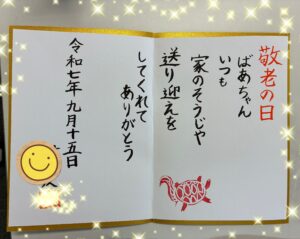 敬老の日
ばあちゃん
いつも
家のそうじや
送り迎えを
してくれて
ありがとう
令和七年九月十五日